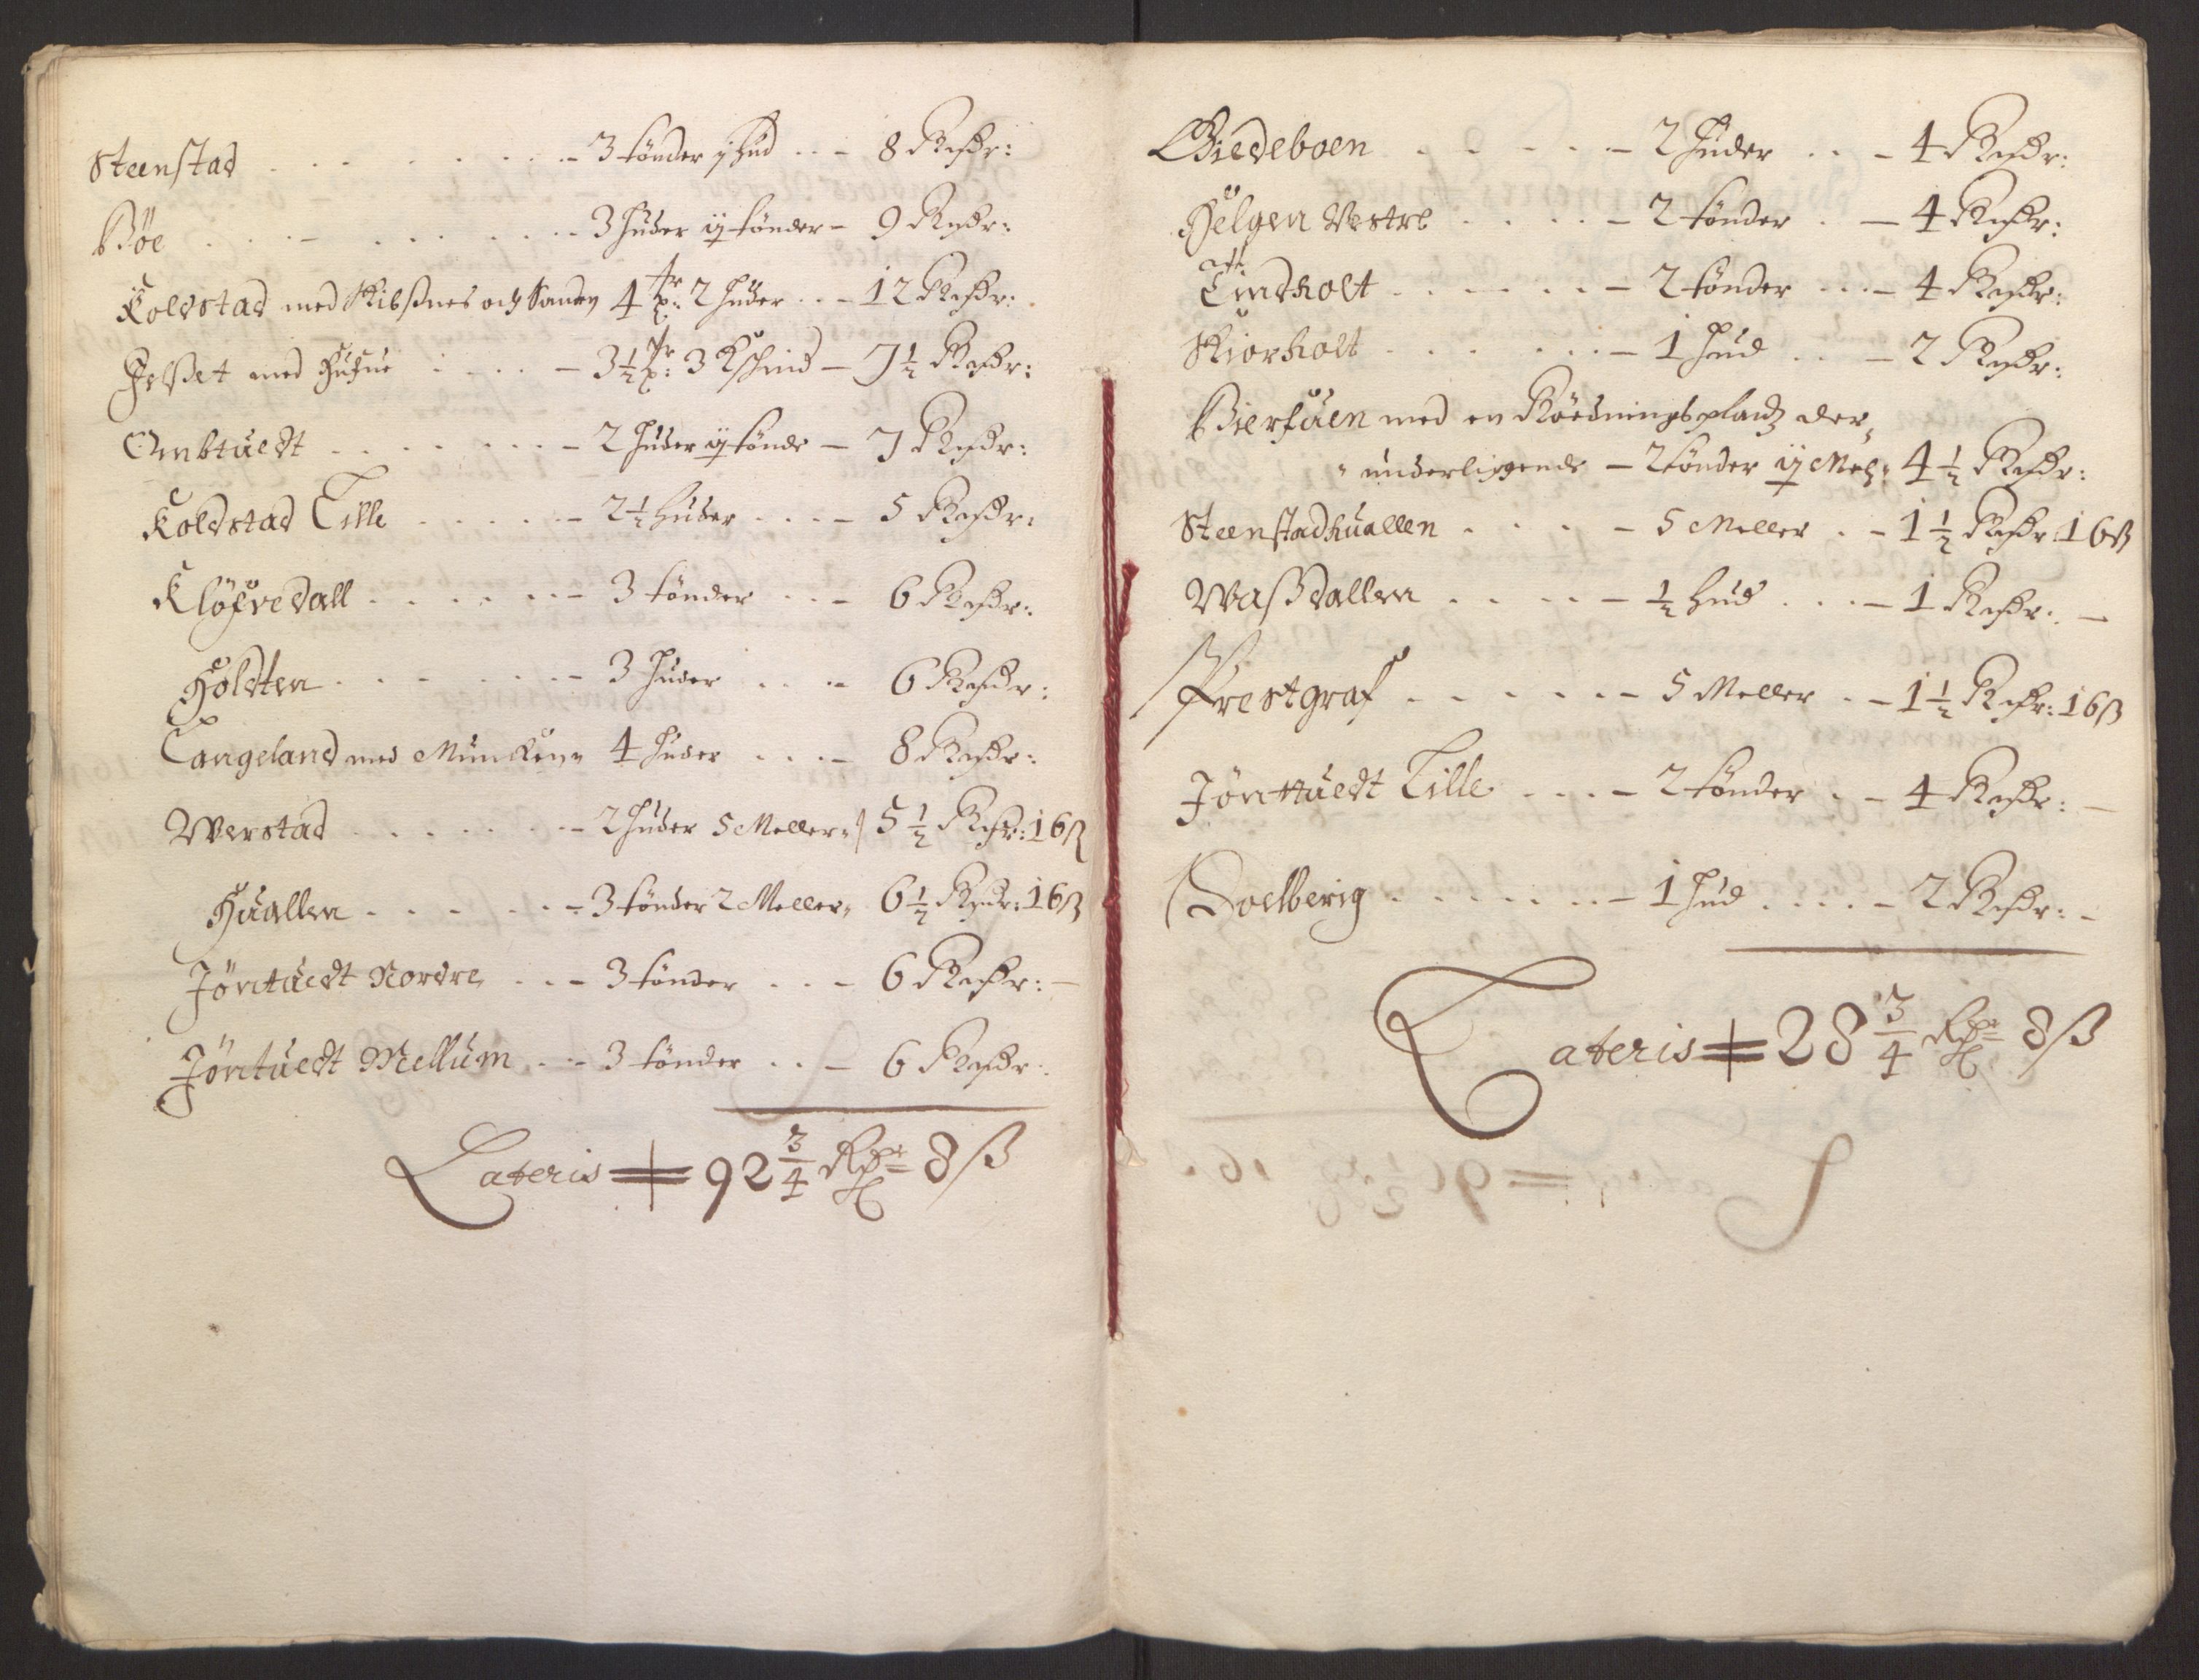 Steenstad . . . . . . . - 3 tønder j hud . . - 8 Rixdr:
Bøe . . . - . . . . . . - 3 huder ij tønder - 9 Rixdr:
Koldstad med Kibsnes och Sanden 4 tr: 2 huder . . - 12 Rixdr:
med . . . . - 3½ tr: 3 Kschind - 7½ Rixdr:
Ombtuedt . . . . . . - 2 huder ij tønde - 7 Rixdr:
Koldstad Lille . . . . . - 2½ huder . . . - 5 Rixdr:
Kløfvedall . . . . . . - 3 tønder . . - 6 Rixdr:
Holdten . . . . . . - 3 huder . . . - 6 Rixdr:
Langeland med Muncken 4 huder . . . - 8 Rixdr:
Werstad . . . . . . - 2 huder 5 Meller 5½ Rixdr: 16 ß
Huallen . . . . . - 3 tønder 2 Meller 6½ Rixdr: 16 ß
Jøntuedt Nordre . . - 3 tønder . . . - 6 Rixdr: -
Jøntuedt Mellum . . - 3 tønder . . - 6 Rixdr:
Lateris = 92 3/4 Rdr 8 ß
Giedeboen . . . . . - 2 huder . . - 4 Rixdr:
Helgen Westre . . . . - 2 tønder . - 4 Rixdr:
Lindholt . . . . . . - 2 tønder . . . - 4 Rixdr:
Kiorholt . . . . . . - 1 hud . . - 2 Rixdr:
Bierfuen med en Rødningsplandz der,
underliggende - 2 tønder ij Mel: 4½ Rixdr:
Steenstadhuallen . . . . - 5 Meller . - 1½ Rixdr: 16 ß
Waßdallen . . . . - ½ hud . . . - 1 Rixdr: -
Prestgraf . . . . . . - 5 Meller . - 1½ Rixdr: 16 ß
Jønttuedt Lille . . . - 2 tønder . - 4 Rixdr: -
Doelberig . . . . . . - 1 hud . . . . - 2 Rixdr: -
Lateris = 28 3/4 Rdr 8 ß